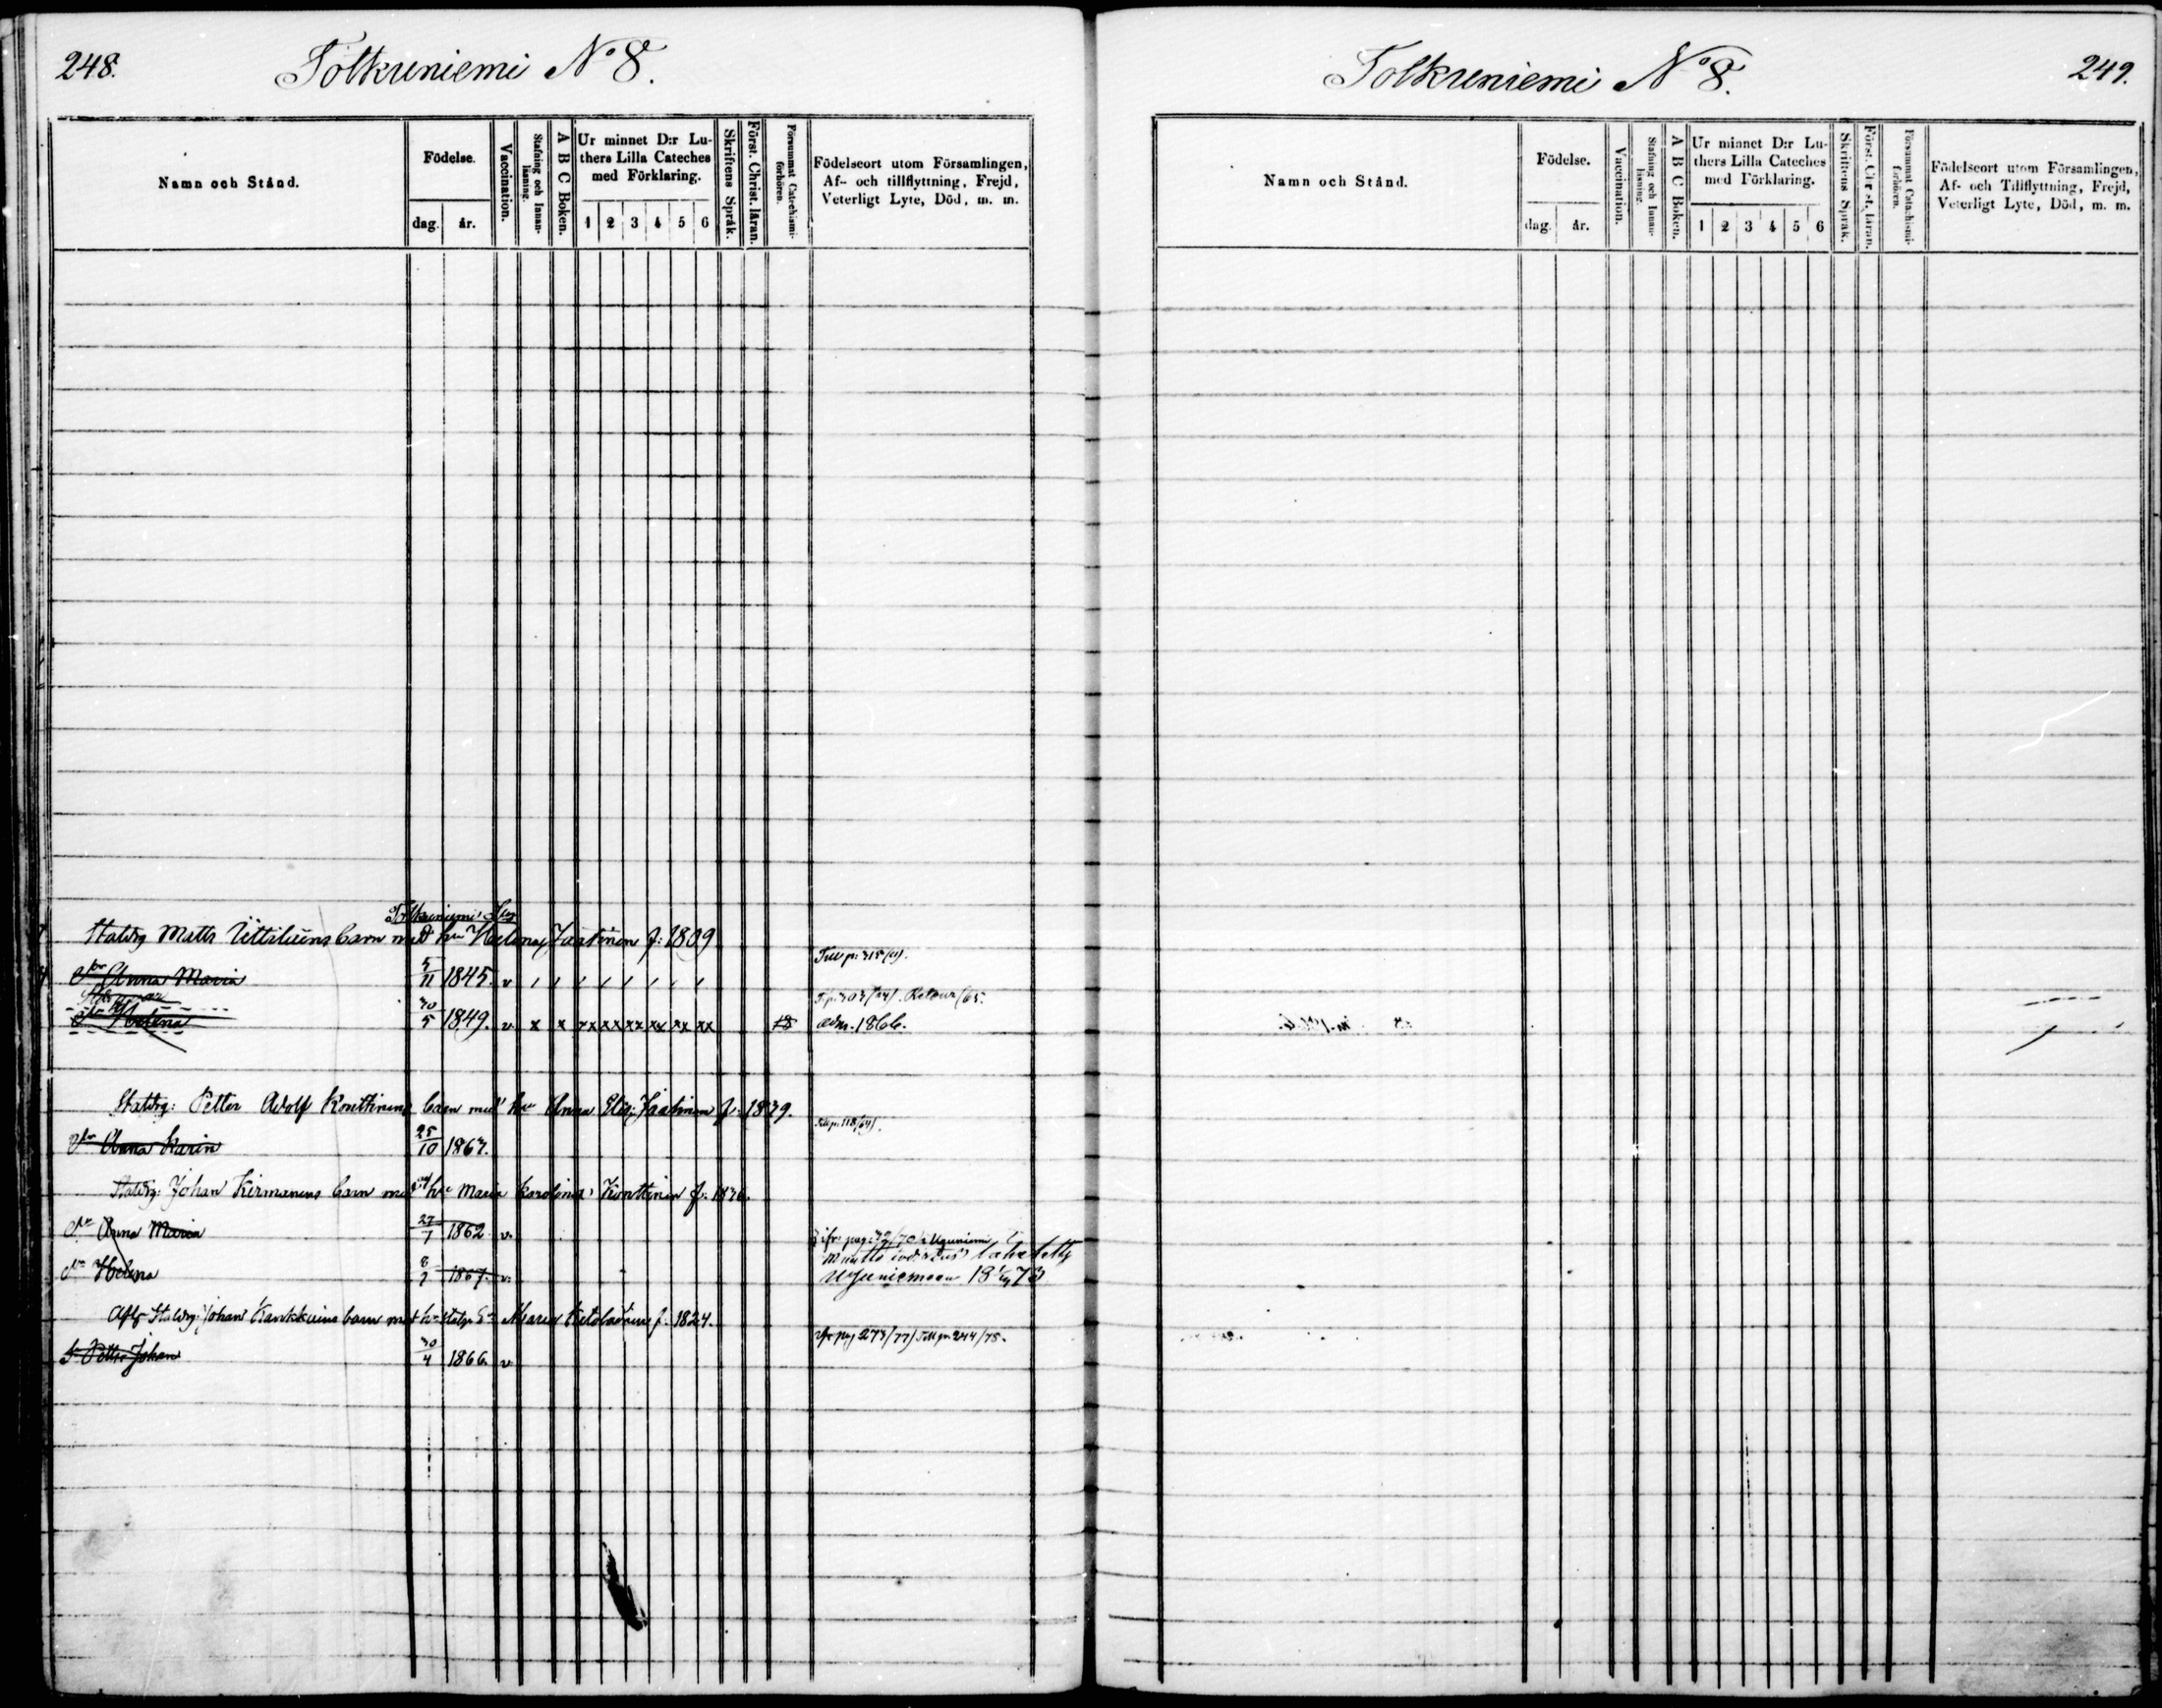 248.
Tolkuniemi No 8.
Namn och Stånd.
Födelse.
dag.
år.
Vaccination.
Stafning och Innan-
läsning.
A B C Boken.
Ur minnet D:r Lu-
thers Lilla Cateches
med Förklaring.
1 2 3 4 5 6
Skriftens Språk.
Först. Christ. läran.
Försummat Catechismi-
förhören.
Födelseort utom Församlingen,
Af- och tillflyttning, Frejd,
Veterligt Lyte, Död, m. m.
Tolkuniemi
Statdrg Matts Uttiliens barn med hu Helena Jaatinen f: 1809
Anna Maria 5/11 1845. v
Helena 30/5 1849. v. x x xx xx xx xx xx xx 18 adm. 1866.
Retour /65.
Statdrg: Petter Adolf Konttinens barn med hu Anna Elis: Jaatinen f: 1839.
Dr Anna Karin 25/10 1863.
Statdrg: Johan Kirmanens barn med hu Maria Karolina Konttinen f: 1836.
Dr Anna Maria 27/7 1862 v.
Dr Helena 1867. v.
Statdrg: Johan barn med Maria f. 1824.
S. Petter Johan 30/4 1866. v.
pag 273/77) Till p. 244/78.
Tolkuniemi No 8.
249.
Namn och Stånd.
Födelse.
dag.
år.
Vaccination.
Stafning och Innan-
läsning.
A B C Boken.
Ur minnet D:r Lu-
thers Lilla Cateches
med Förklaring.
1 2 3 4 5 6
Skriftens Språk.
Först. Christ. läran.
Försummat Catechismi-
förhören.
Födelseort utom Församlingen,
Af- och Tillflyttning, Frejd,
Veterligt Lyte, Död, m. m.